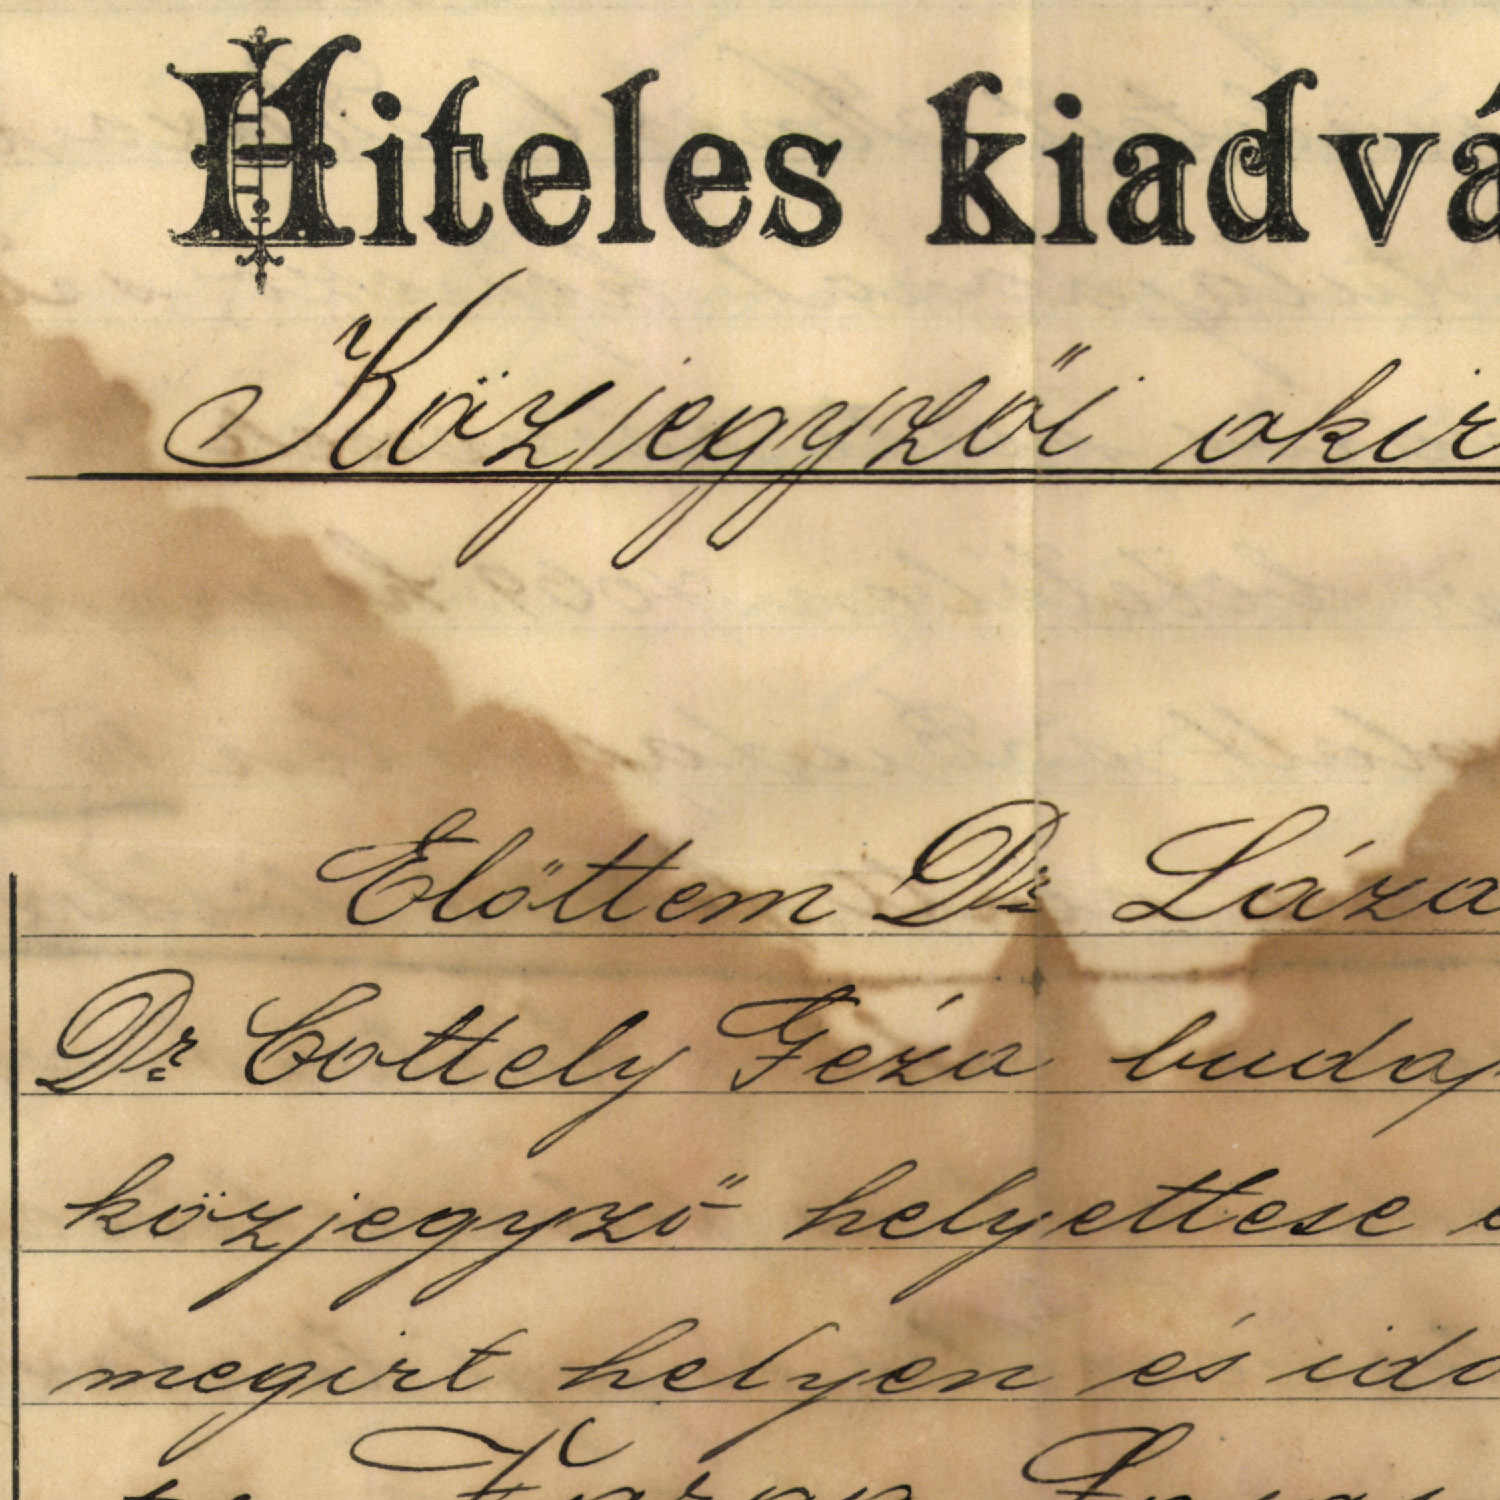 Hiteles kiadvá
Közjegyzői okir
Előttem Dr Láza
Dr Cottely Géza budap
közjegyző helyettese
megirt helyen és idő